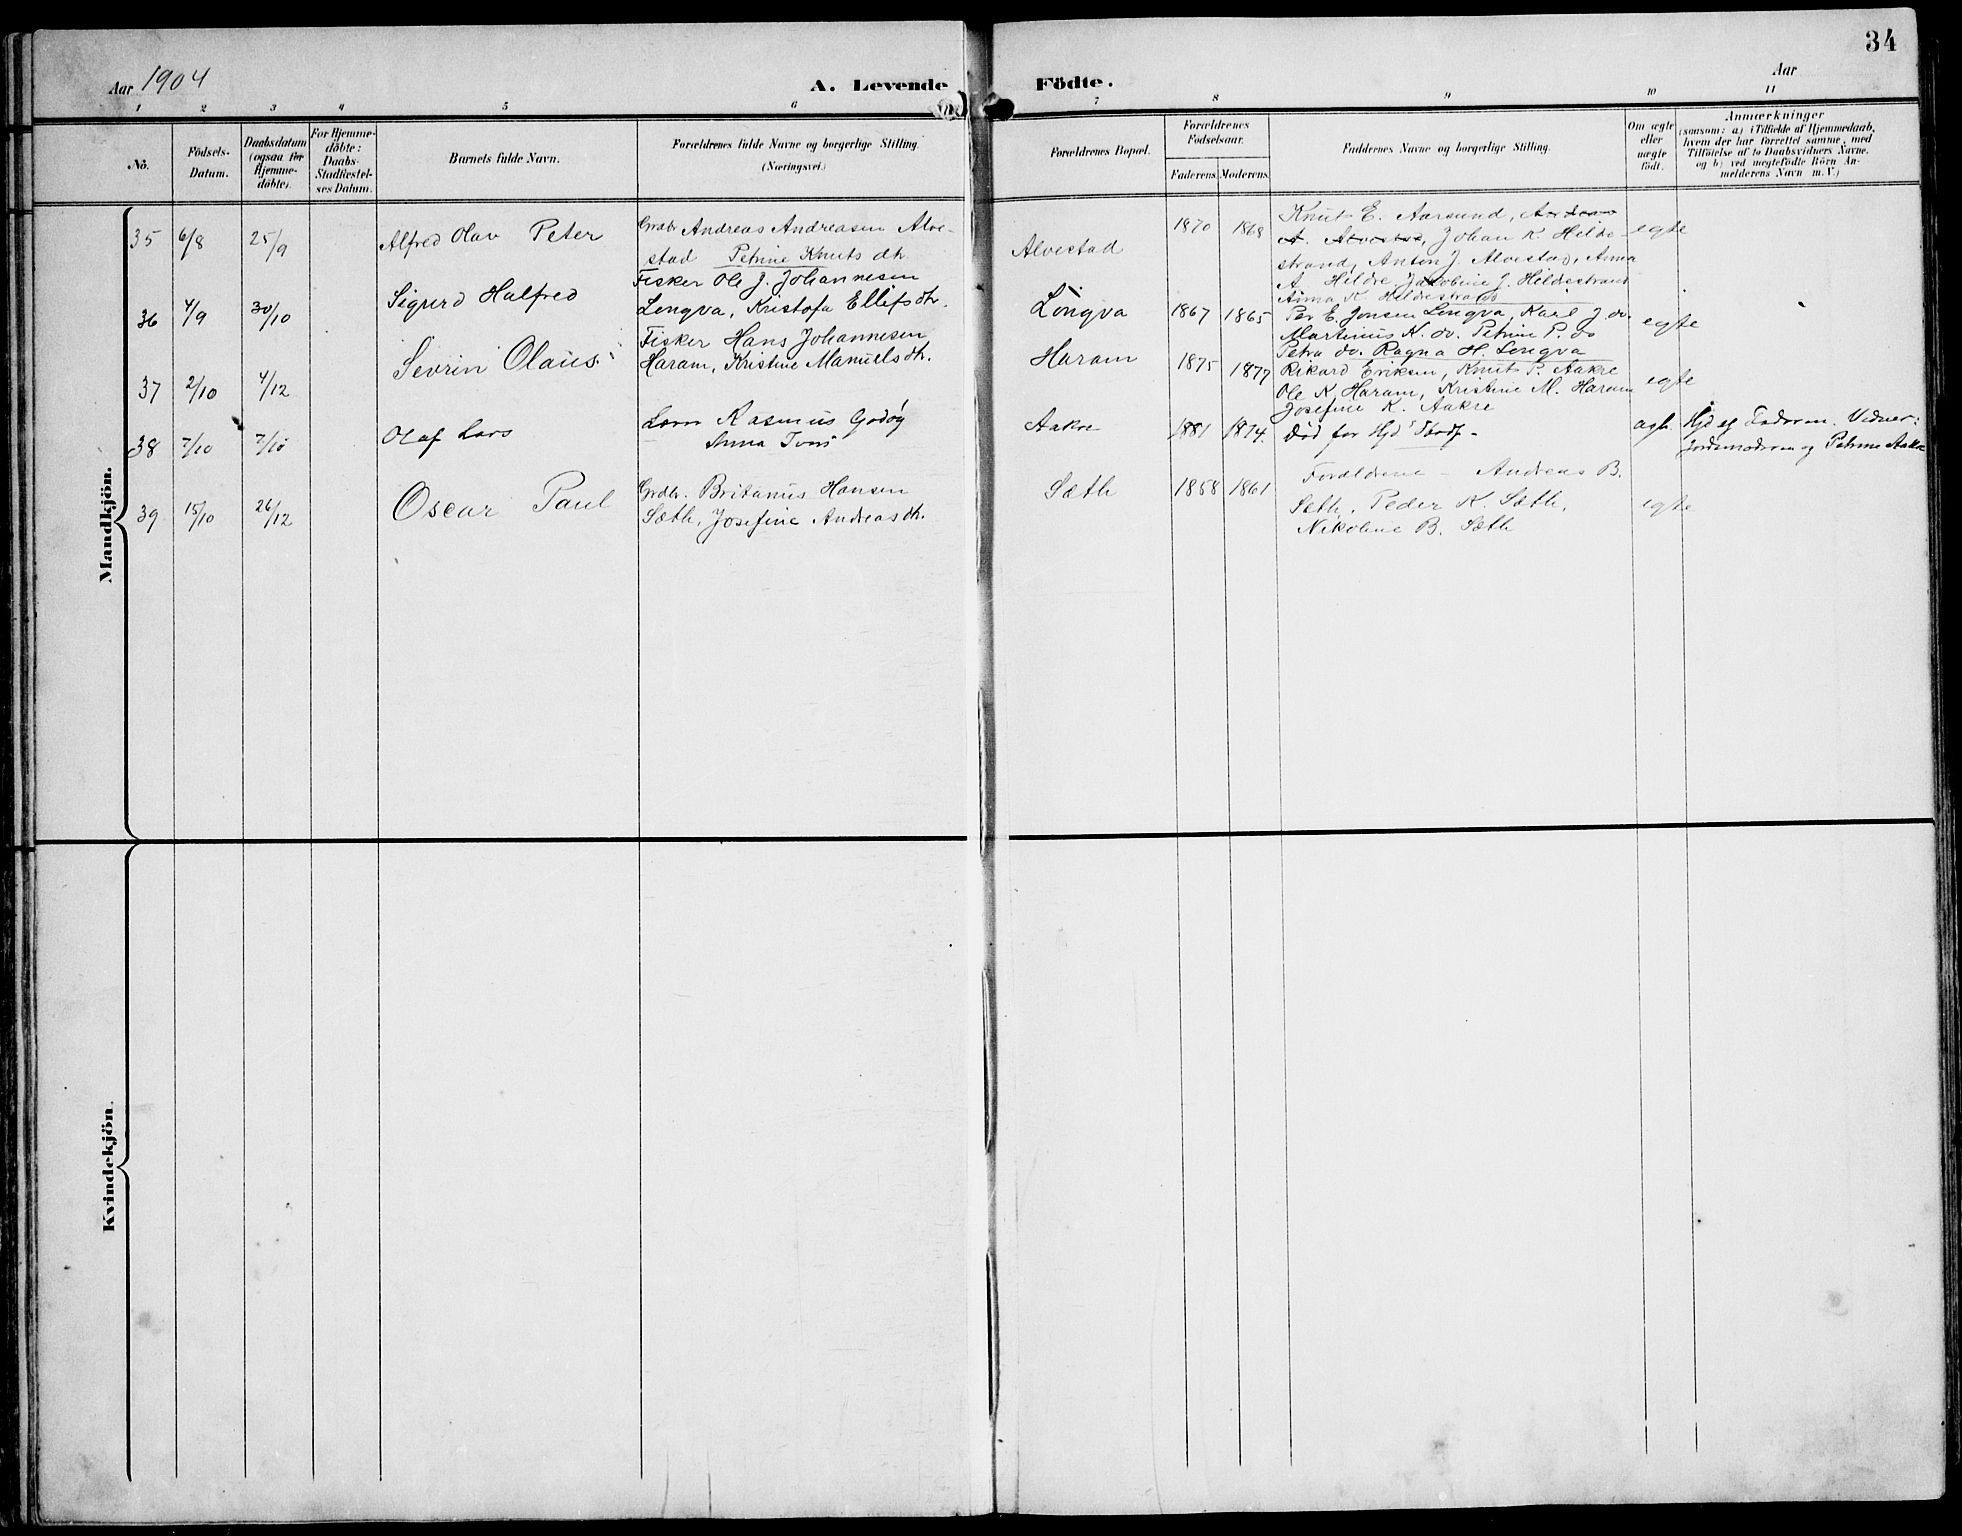 34
Aar 1904
A. Levende Födte.
Aar
1 2 3 4 5 6 7 8 9 10 11
No.
Födsels-
Datum.
Daabsdatum
(ogsaa for
Hjemme-
döbte).
For Hjemme-
döbte:
Daabs-
Stadfæstel-
ses Datum.
Barnets fulde Navn.
Forældrenes fulde Navne og borgerlige Stilling.
(Næringsvei.)
Forældrenes Bopæl.
Forældrenes
Födselsaar.
Faderens. Moderens.
Faddernes Navne og borgerlige Stilling.
Om ægte
eller
uægte
födt.
Anmærkninger
(saasom: a) i Tilfælde af Hjemmedaab,
hvem der har forrettet samme, med
Tilföielse af to Daabsvidners Navne.
og b) ved uegtefödte Börn An-
melderens Navn m. V.)
Mandkjön.
35 6/8 25/9 Alfred Olav Peter
Grdbr Andreas Andreasen Alve-
stad Petrine Knuts dtr.
Alvestad 1870 1868
Knut E. Aarsund,
A. Alvestad, Johan K. Hilde-
strand, Anton J. Alvestad, Anna
A. Hildre, Jakobine J. Hildestrand
Anna K. Hildestrand
egte
36 4/9 30/10 Sigurd Halfred
Fisker Ole J. Johannesen
Longva, Kristofa Ellifs dtr.
Longva 1867 1865
Per E. Jonsen Longva, Karl J. do.
Martinius K. do. Petrine P. do
Petra do. Ragna H. Longva
egte
37 2/10 4/12 Sevrin Olaus
Fisker Hans Johannesen
Haram, Kristine Manuels dtr.
Haram 1875 1877
Rikard Eriksen, Knut P. Aakre
Ole K. Haram, Kristine M. Haram
Josefine K. Aakre
egte
38 7/10 7/10 Olaf Lars
Rasmus Godøy
Anna
Aakre 1881 1874.
Død før
Hjd af Faderen. Vidner:
Jordmoderen og Petrine Aakre
39 15/10 26/12 Oscar Paul
Grdbr. Britanus Hansen
Sæth, Josefine Andreas dtr.
Sæth 1858 1861
Forældrene – Andreas B.
Sæth, Peder K. Sæth,
Nikoline B. Sæth
egte
Kvindekjön.